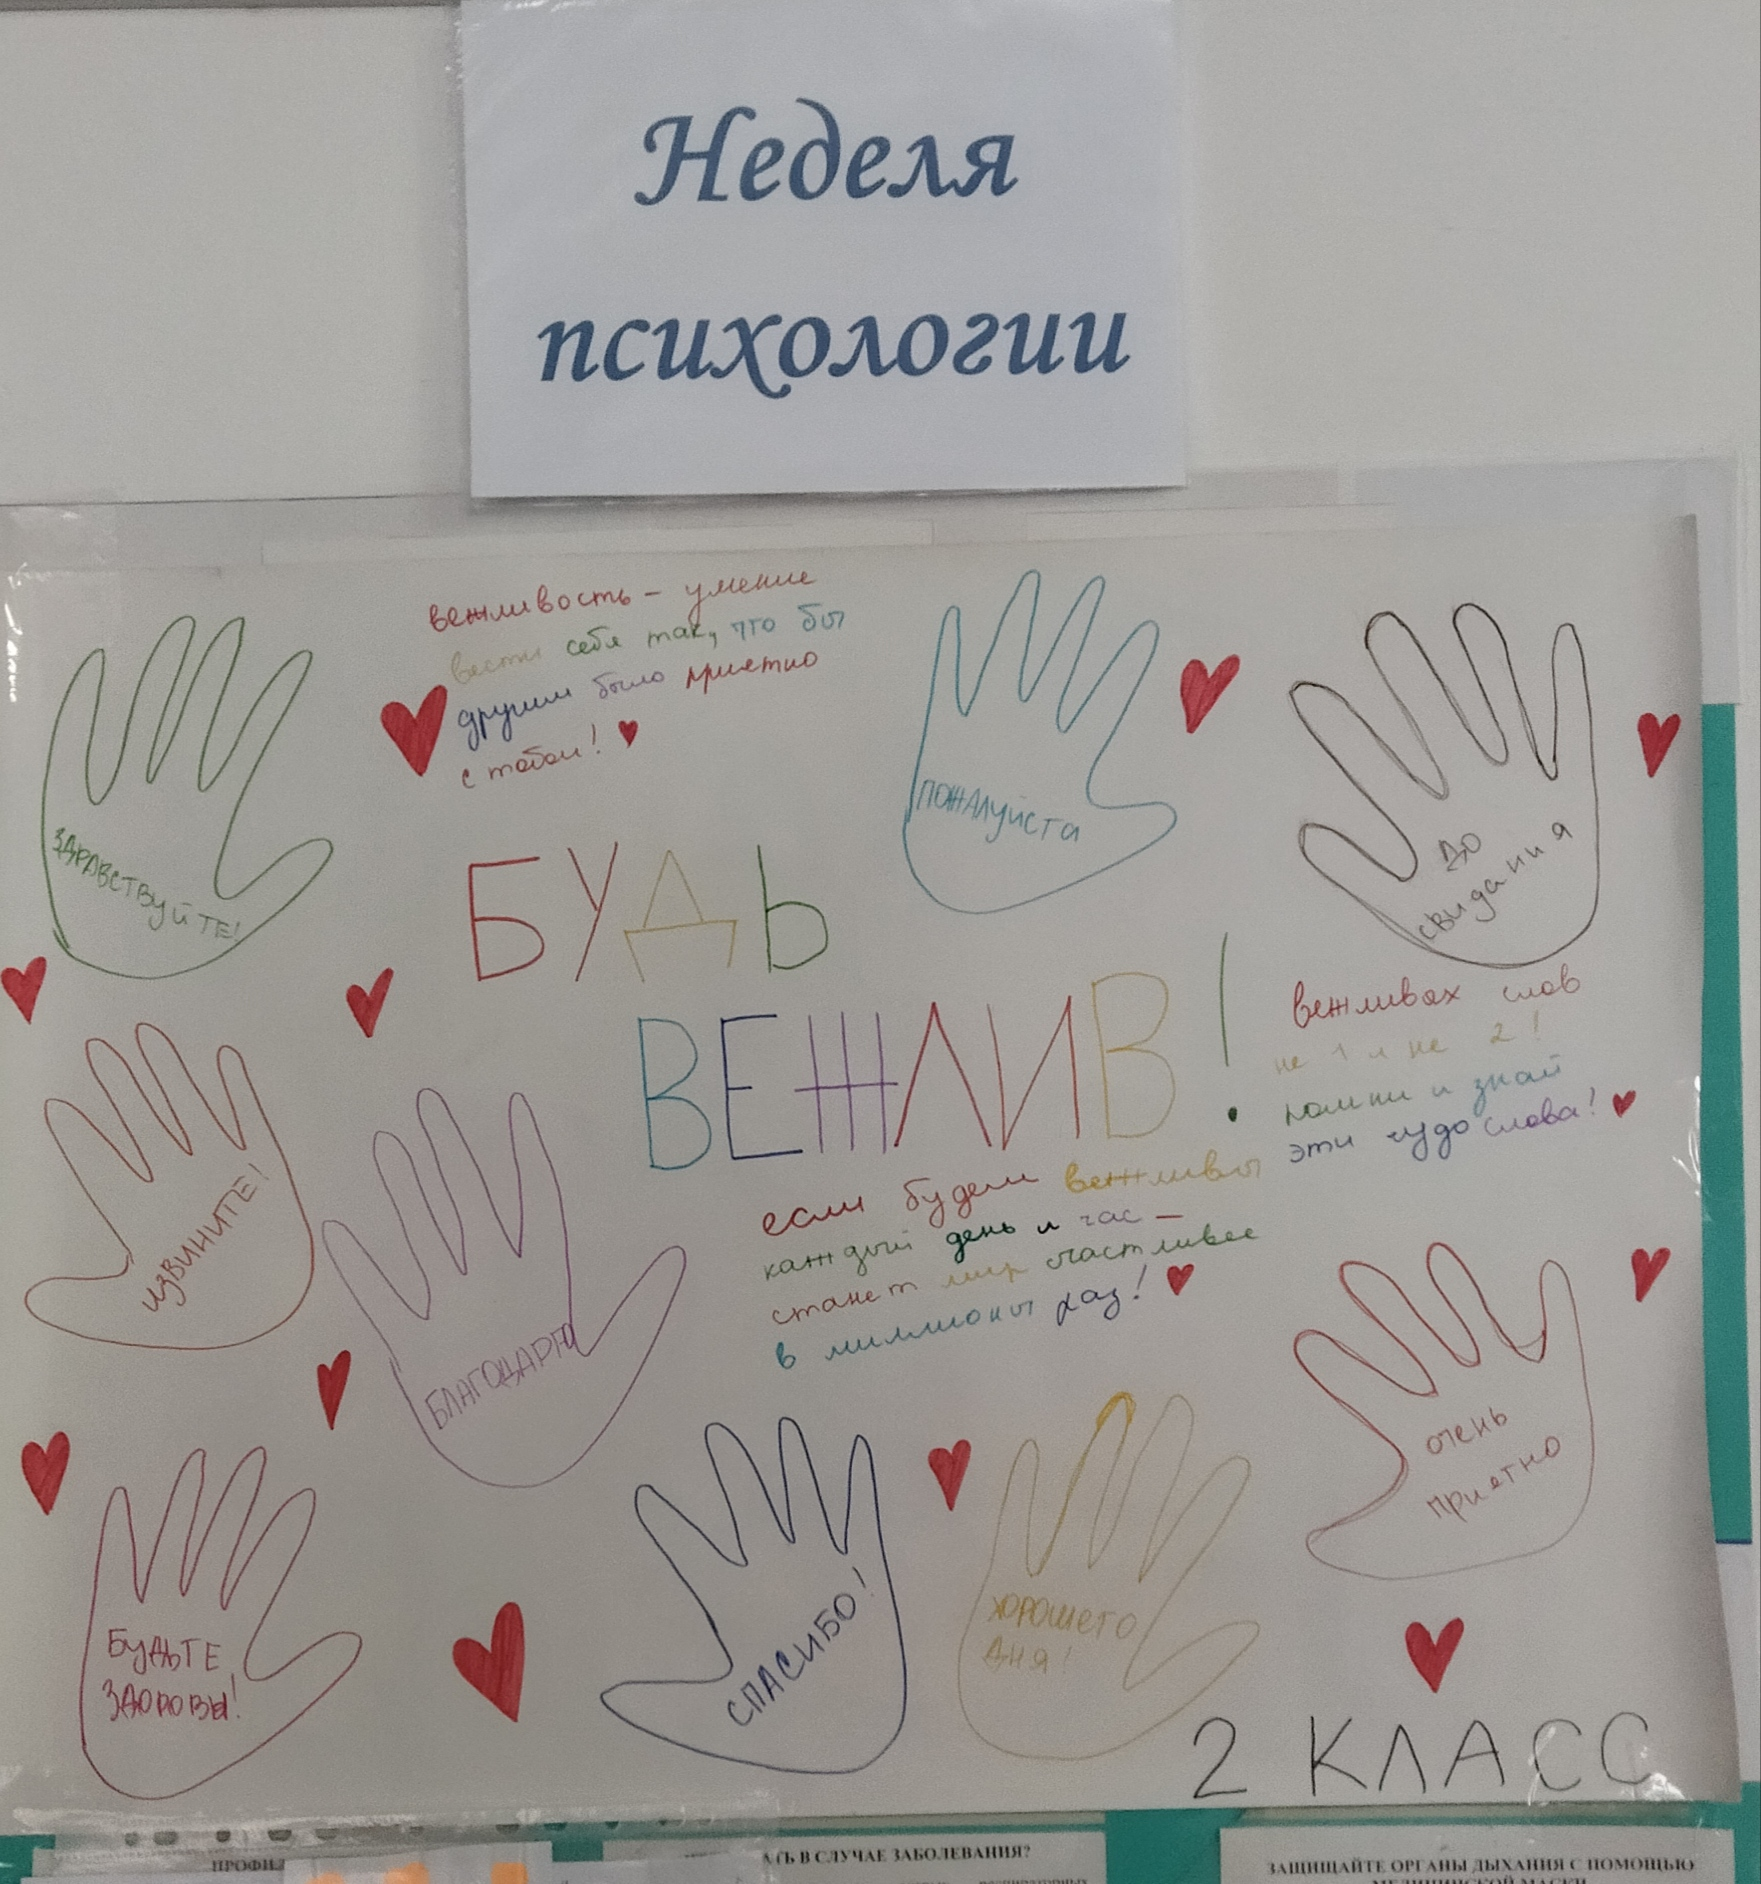 Неделя
психологии
вежливость - умение
вести себя так, что бы
другим было приятно
с тобой!
ЗДРАВСТВУЙТЕ!
ПОЖАЛУЙСТА
ДО
свидания
БУДЬ
ВЕЖЛИВ!
вежливых слов
не 1 и не 2!
помни и знай
эти чудо слова!
ИЗВИНИТЕ!
БЛАГОДАРЮ
если будем вежливы
каждый день и час –
станет мир счастливее
в миллионы раз!
очень
приятно
БУДЬТЕ
ЗДОРОВЫ!
СПАСИБО!
ХОРОШЕГО
ДНЯ!
2 КЛАСС
В СЛУЧАЕ ЗАБОЛЕВАНИЯ?
ЗАЩИЩАЙТЕ ОРГАНЫ ДЫХАНИЯ С ПОМОЩЬЮ